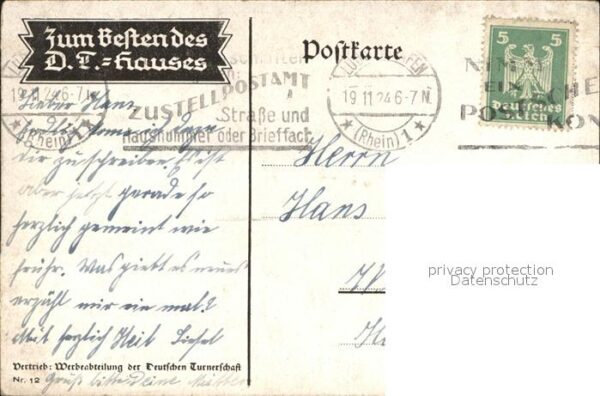 Zum Besten des
D. T.-Hauses
Postkarte
5 5
Deutsches
Reich
19.11.24 6-7 N.
(Rhein)
ZUSTELLPOSTAMT
Straße und
Hausnummer oder Brieffach
19.11.24 6-7 N.
(Rhein) 1
PO
KON
Lieber Hans
dir zu schreiben. Es ist
aber jetzt gerade so
herzlich gemeint wie
früher. Was giebt es neues
erzähl mir ein mal?
Mit herzlich Heil Liesel
Gruß bitte deine
Herrn
Hans
privacy protection
Datenschutz
Vertrieb: Werbeabteilung der Deutschen Turnerschaft
Nr. 12